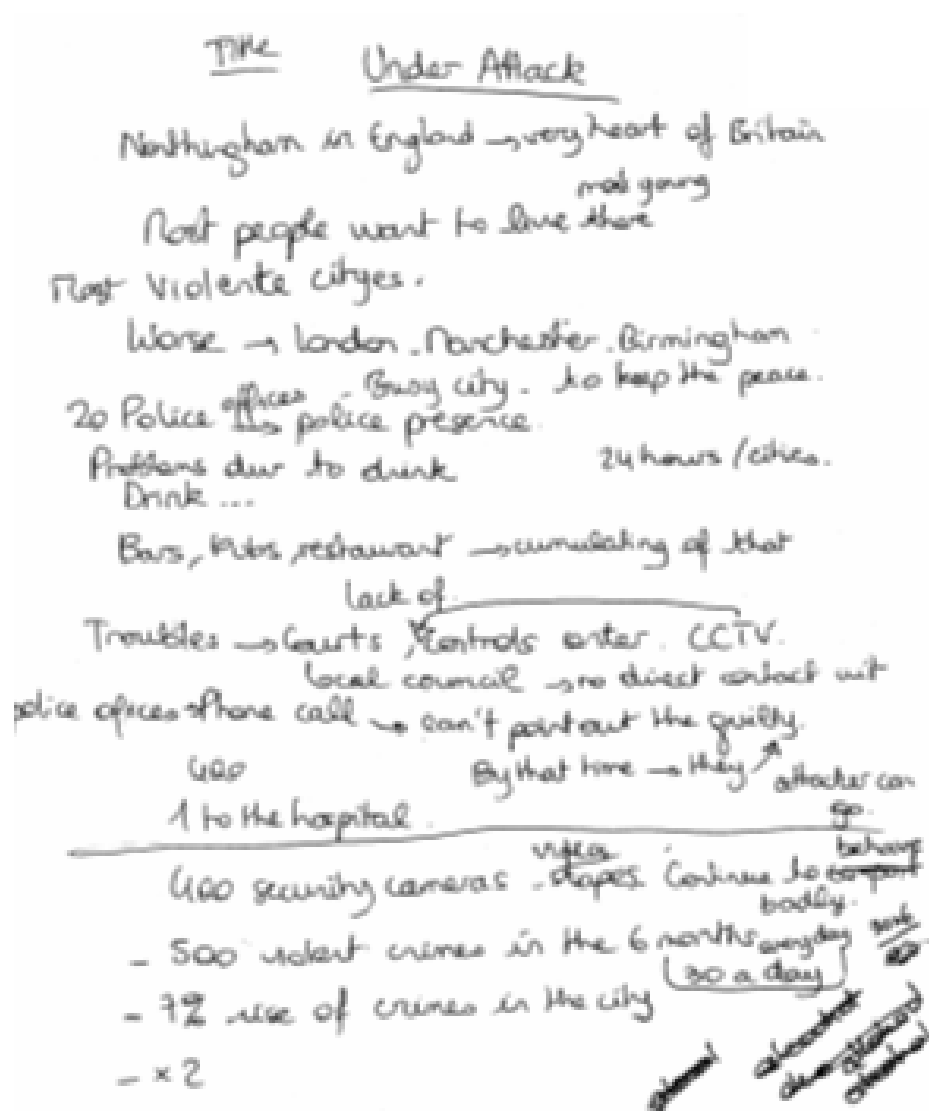 Title Under Attack
Notthingham in England → very heart of Britain
most young
Most people want to live there
Most violente cityes.
Worse → London. Manchester. Birmingham
20 Police offices - Busy city. to keep the peace.
↳ police presence.
Problems dur to drink 24 hours / cities.
Drink ...
Bars, Pubs, restaurant → cumulating of that
lack of
Troubles → Courts, controls CCTV.
local council → no direct contact wit
police ofices → Phone call → can't point out the guilty.
400 By that time → they attacker can
1 to the hospital. go.
400 security cameras - video Continue to behave
badly.
- 500 violent crimes in the 6 months every day
30 a day
- 7% rise of crimes in the city
- x 2